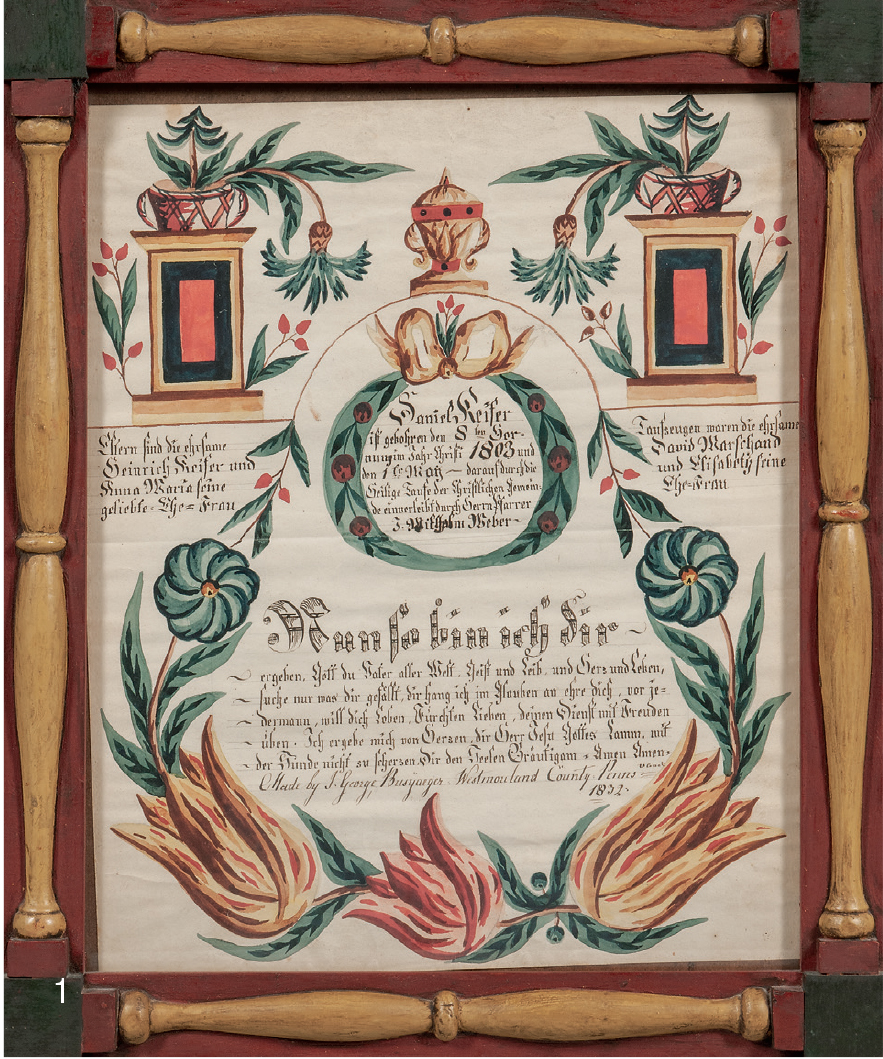 Daniel Keiser
ist gebohren den 8ten Hor-
nung im Jahr Christi 1803 und
den 1ten May – darauf durch die
Heilige Taufe der Christlichen Gemein-
de einverleibt durch Herrn Pfarrer
J. Wilhelm Weber –
Eltern sind die ehrsame
Heinrich Keiser und
Anna Maria seine
geliebte Ehe = Frau
Taufzeugen waren die ehrsame
David Marschand
und Elisabeth seine
Ehe = Frau
Nun so bin ich dir
ergeben, Gott du Vater aller Welt. Geist und Leib, und Herz und Leben,
suche nur was dir gefällt, dir hang ich im Glauben an ehre dich, vor je=
dermann, will dich Loben, Fürchten Lieben, deinen Dienst mit Freuden
üben. Ich ergebe mich von Herzen, dir Herr Jesu Gottes Lamm, mit
der Sünde nicht zu scherzen Dir den Seelen Bräutigam = Amen Amen
Made by George Busyager, Westmorland County Penns
1832
1